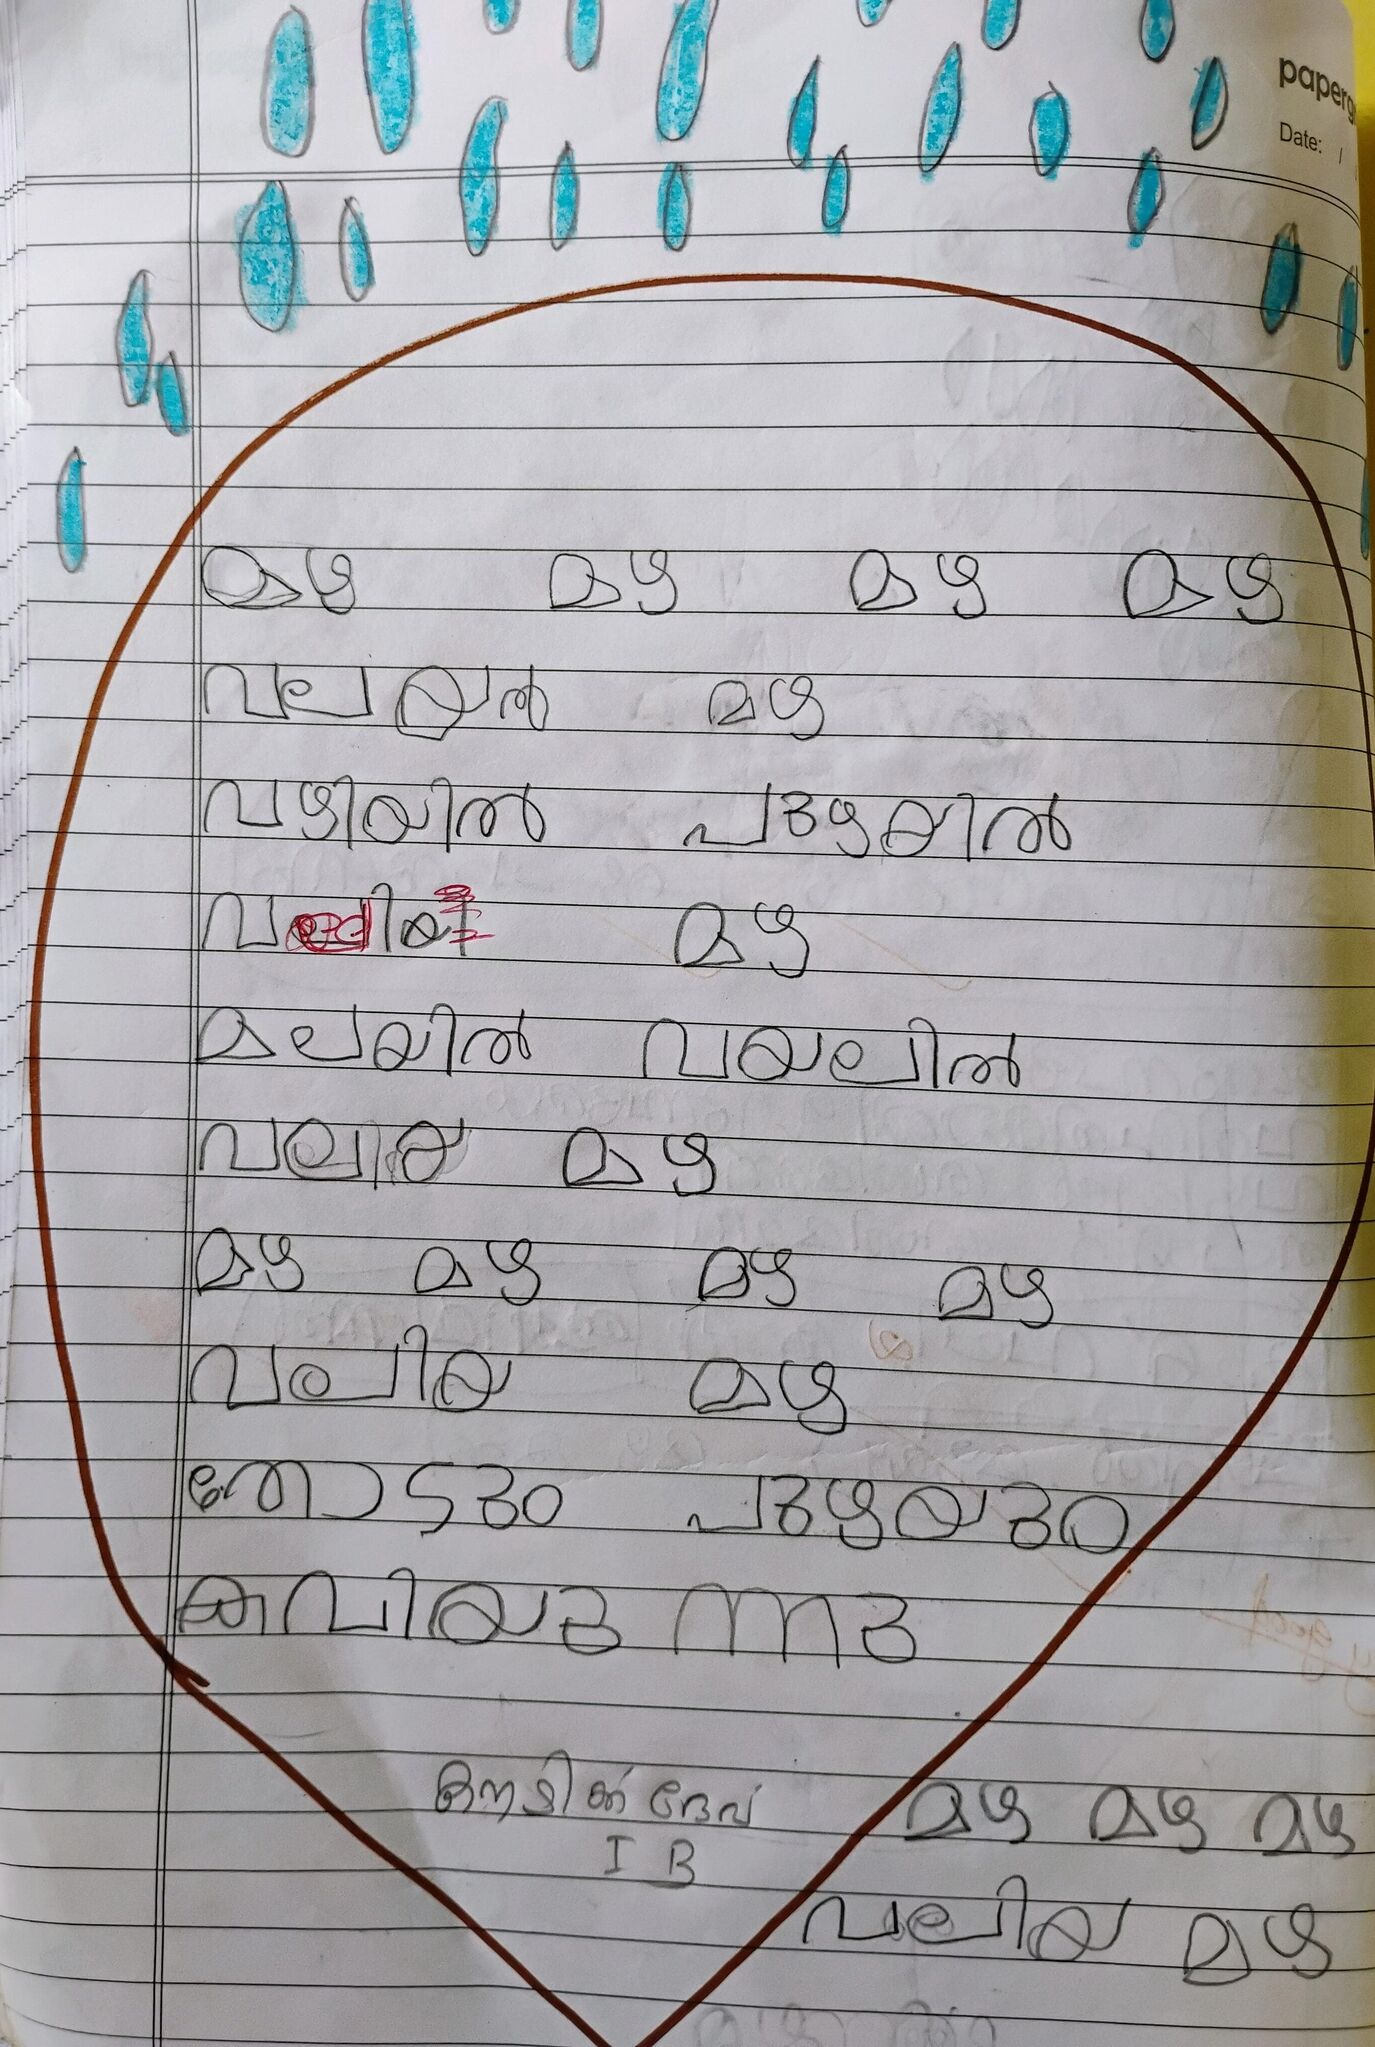 paperg
Date: /
മഴ മഴ മഴ മഴ
വലയൽ മഴ
വഴിയിൽ പുഴയിൽ
മഴ
മലയിൽ വയലിൽ
വലിയ മഴ
മഴ മഴ മഴ മഴ
വലിയ മഴ
തോടും പുഴയും
കവിയുന്നു
ദേവ്
I B
മഴ മഴ മഴ
വലിയ മഴ